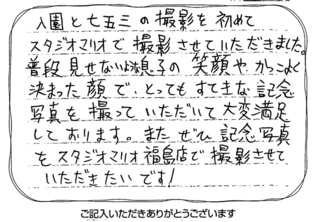 入園と七五三の撮影を初めて
スタジオマリオで撮影させていただきました。
普段見せない息子の笑顔やかっこよく
決まった顔で、とってもすてきな記念
写真を撮っていただいて大変満足
しております。またぜひ記念写真
をスタジオマリオ福島店で撮影させて
いただきたいです!
ご記入いただきありがとうございます